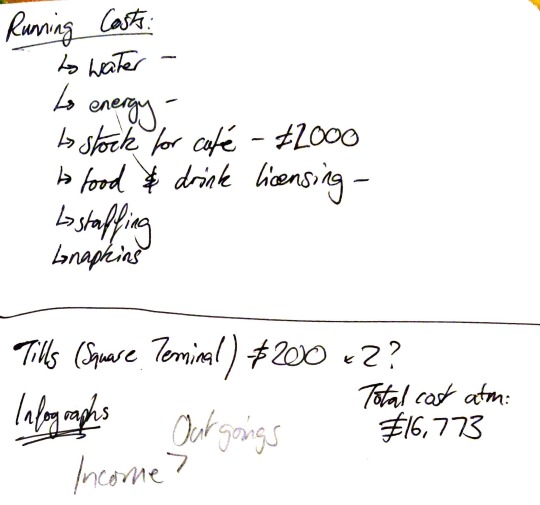 Running Costs:
↳ water -
↳ energy -
↳ stock for café - £2000
↳ food & drink licensing -
↳ staffing
↳ napkins
Tills (Square Teminal) £200 x 2?
Infographs
Total cost atm:
£16,773
Outgoings
Income >